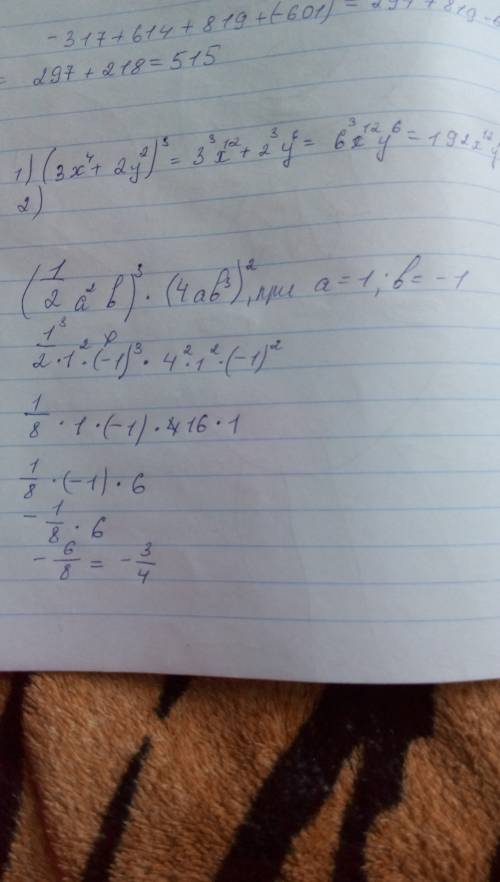 -317+614+819+(-601) = 297+819-
= 297+218=515
1) (3x⁴+ 2y²)³ = 3³x¹²+2³y⁶= 6³x¹²y⁶=192x¹²y
2)
(1/2 a²b)³ · (4ab³)², при a=1; b= -1
1³/2 · 1² · (-1)³ · 4² · 1² · (-1)²
1/8 · 1 · (-1) · 16 · 1
1/8 · (-1) · 6
- 1/8 · 6
- 6/8 = - 3/4